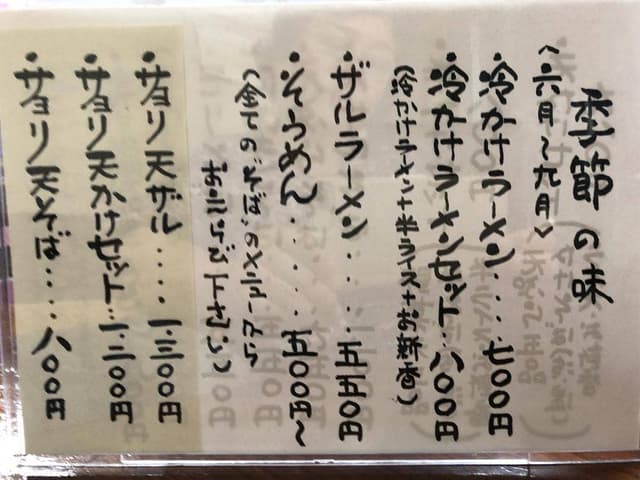 季節の味
〈六月～九月〉
・冷かけラーメン....七〇〇円
・冷かけラーメンセット..八〇〇円
(冷かけラーメン+半ライス+お新香)
・ザルラーメン....五五〇円
・そうめん......五〇〇円～
(全ての"そば"のメニューから
おえらび下さい。)
・サヨリ天ザル....一.三〇〇円
・サヨリ天かけセット..一.二〇〇円
・サヨリ天そば....八〇〇円